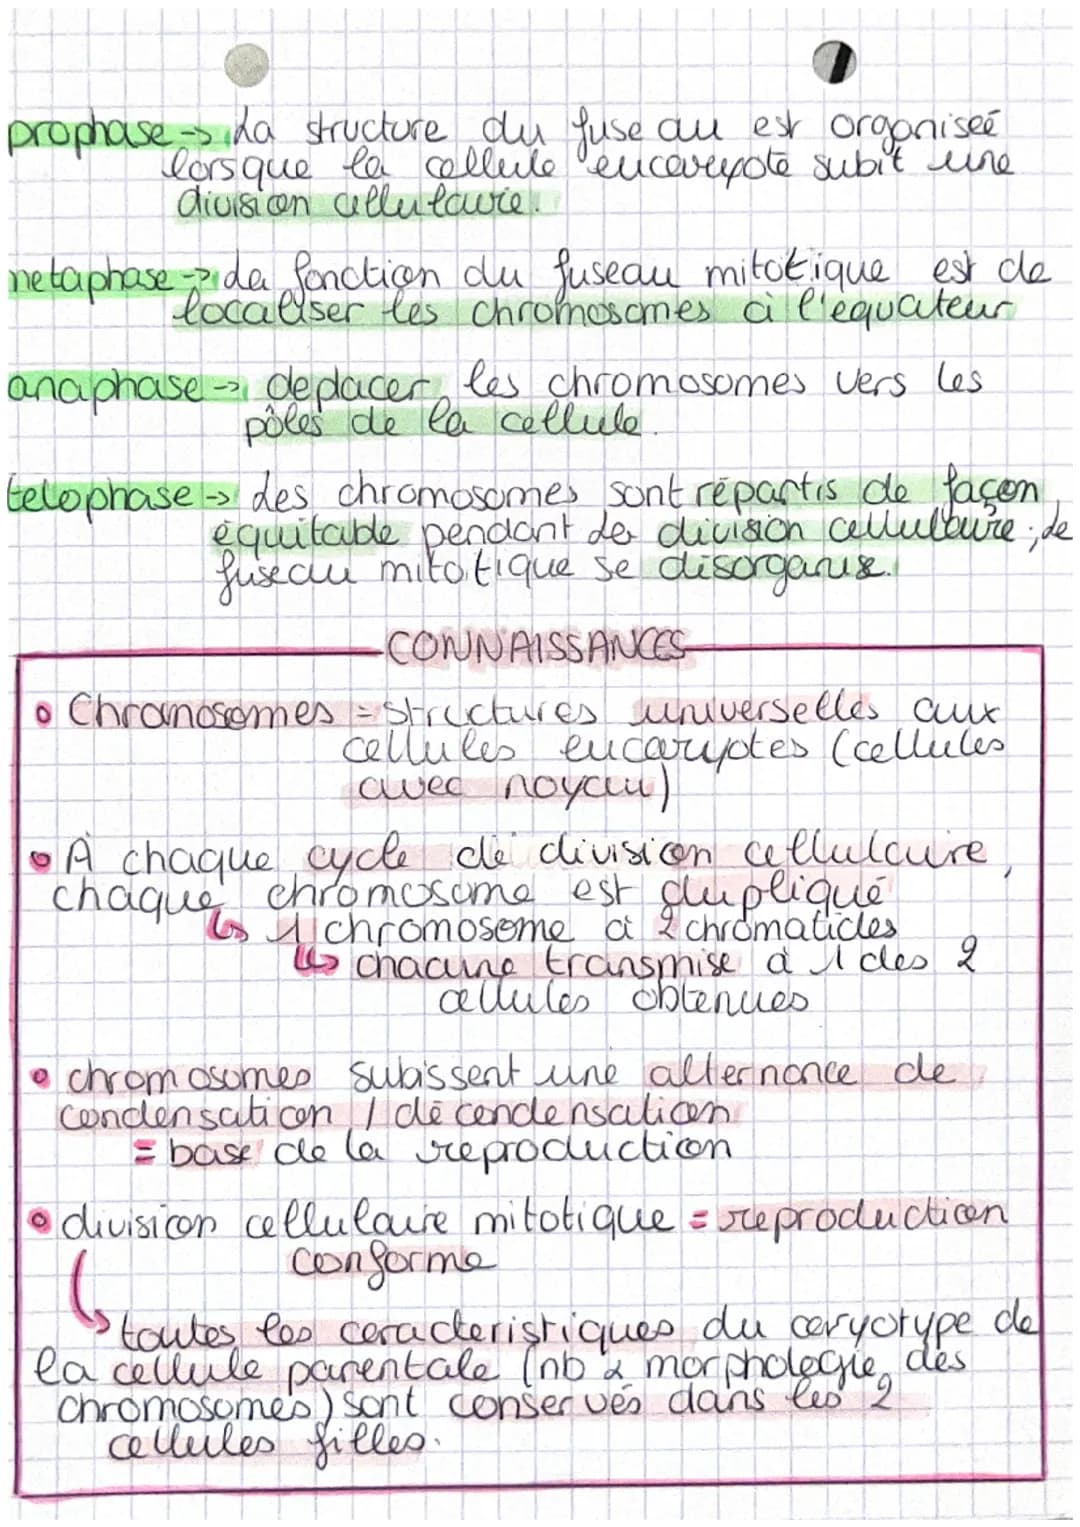 prophase -> La structure du fuseau est organiseé
lorsque la cellule eucaryote subit une
division cellulaire.
metaphase -> La fonction du fuseau mitotique est de
localiser les chromosomes à l'equateur
anaphase -> deplacer les chromosomes vers les
pôles de la cellule.
telophase -> Les chromosomes sont répartis de façon
équitable pendant la division cellulaire ; le
fuseau mitotique se désorganise.
CONNAISSANCES
• Chromosomes = structures universelles aux
cellules eucaryotes (cellules
avec noyau)
• À chaque cycle de division cellulaire,
chaque chromosome est dupliqué
↳ 1 chromosome à 2 chromatides
↳ chacune transmise à 1 des 2
cellules obtenues
• chromosomes subissent une alternance de
condensation / décondensation
= base de la reproduction
• division cellulaire mitotique = reproduction
conforme
↳ toutes les caracteristiques du caryotype de
la cellule parentale (nb & morphologie des
chromosomes) sont conservés dans les 2
cellules filles.